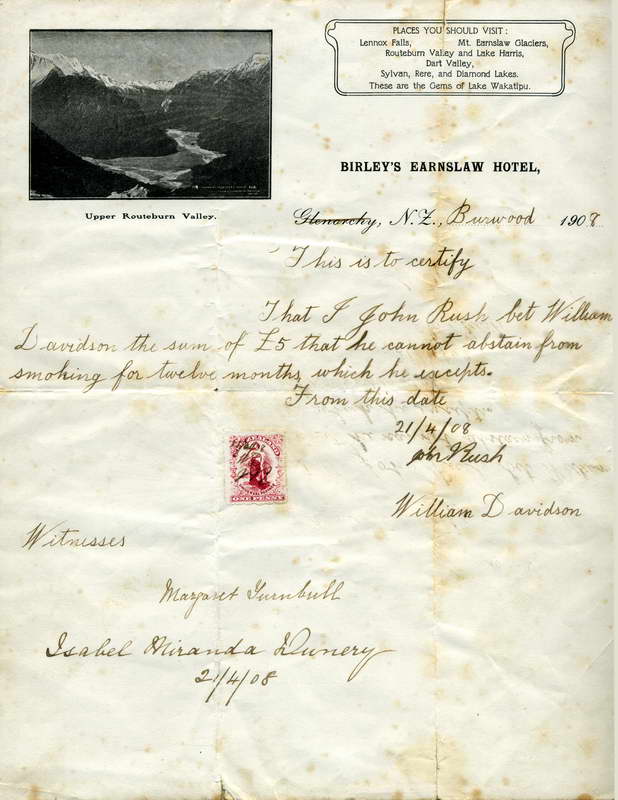 PLACES YOU SHOULD VISIT :
Lennox Falls, Mt. Earnslaw Glaciers,
Routeburn Valley and Lake Harris,
Dart Valley,
Sylvan, Rere, and Diamond Lakes.
These are the Gems of Lake Wakatipu.
Upper Routeburn Valley.
BIRLEY'S EARNSLAW HOTEL,
Glenorchy, N.Z., Burwood 1908
This is to certify
That I John Rush bet William
Davidson the sum of £5 that he cannot abstain from
smoking for twelve months, which he excepts.
From this date
21/4/08
Rush
ZEALAND
ONE PENNY
William Davidson
Witnesses
Margaret Turnbull
Isabel Miranda
21/4/08